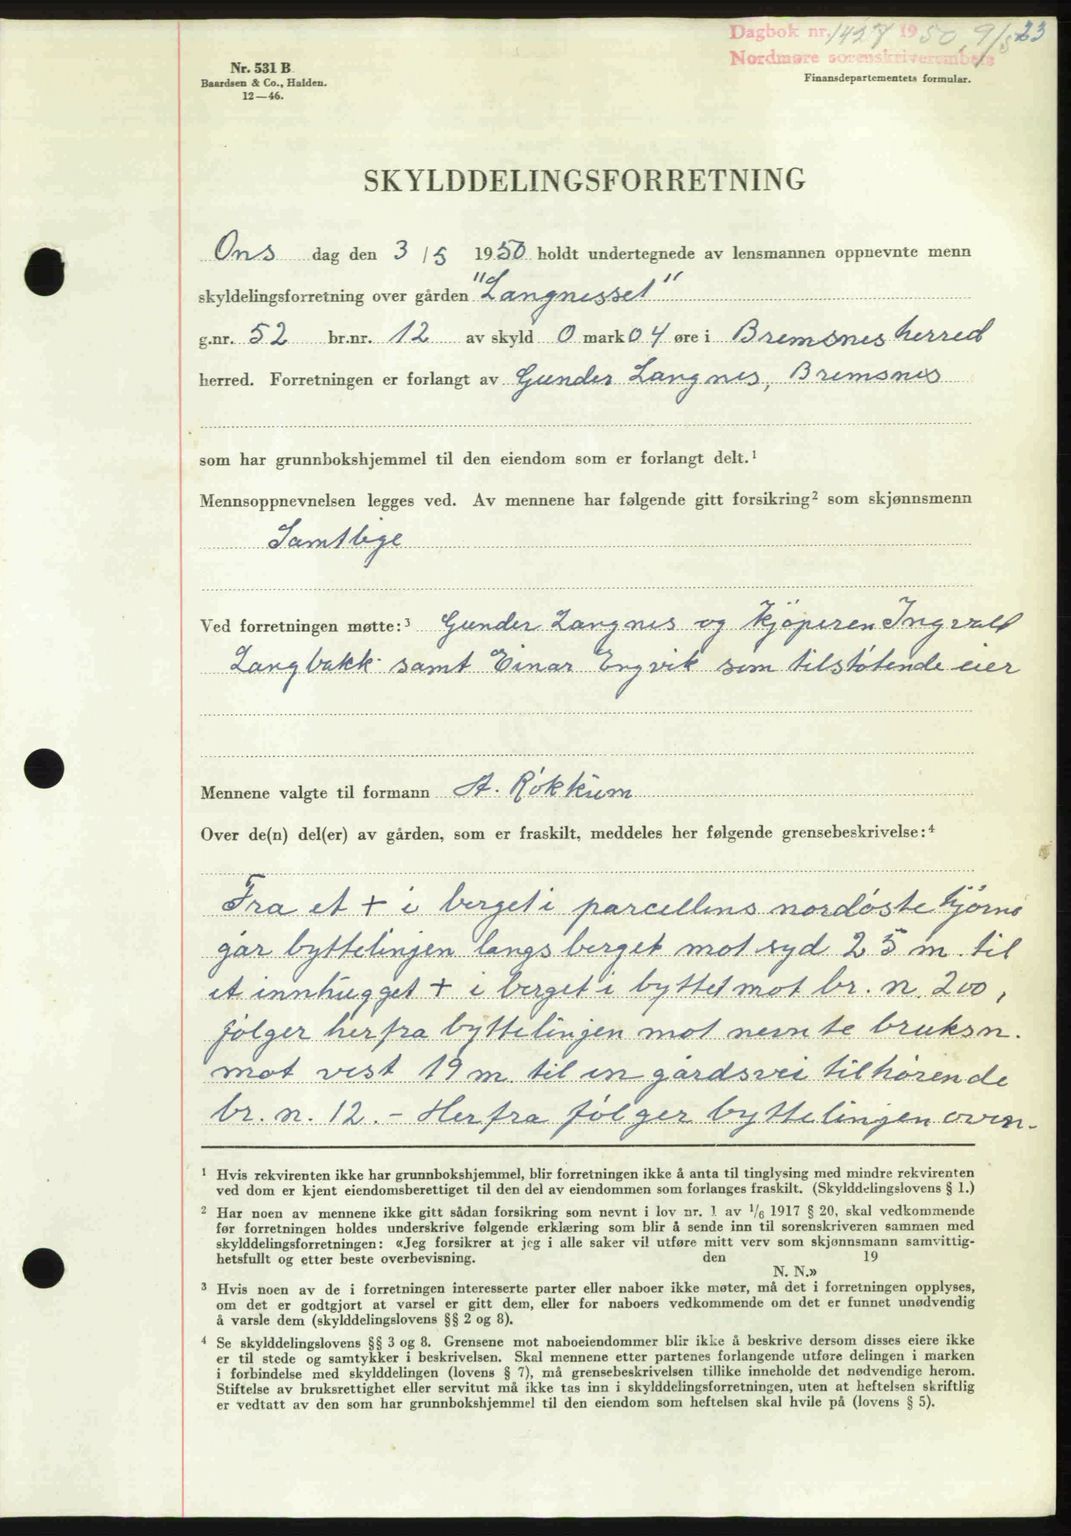 Dagbok nr. 1427 1950, 9/5 23
Nordmøre sorenskriverembete
Nr. 531 B
Baardsen & Co., Halden.
12—46.
Finansdepartementets formular.
SKYLDDELINGSFORRETNING
Ons dag den 3/5 1950 holdt undertegnede av lensmannen oppnevnte menn
skyldelingsforretning over gården "Langnesset"
g.nr. 52 br.nr. 12 av skyld 0 mark 04 øre i Bremsnes herred
herred. Forretningen er forlangt av Gunder Langnes, Bremsnes
som har grunnbokshjemmel til den eiendom som er forlangt delt.¹
Mennsoppnevnelsen legges ved. Av mennene har følgende gitt forsikring² som skjønnsmenn
Samtlige
Ved forretningen møtte:³ Gunder Langnes og kjøperen Ingvald
Langbakk samt Einar Engvik som tilstøtende eier
Mennene valgte til formann A. Røkkum
Over de(n) del(er) av gården, som er fraskilt, meddeles her følgende grensebeskrivelse:⁴
Fra et + i berget i parcellens nordøste hjørne
går byttelinjen langs berget mot syd 25 m. til
et innhugget + i berget i byttet mot br. n. 200,
følger herfra byttelinjen mot nevnte bruksn.
mot vest 19 m. til en gårdsvei tilhørende
br. n. 12. - Herfra følger byttelinjen oven-
¹ Hvis rekvirenten ikke har grunnbokshjemmel, blir forretningen ikke å anta til tinglysing med mindre rekvirenten
ved dom er kjent eiendomsberettiget til den del av eiendommen som forlanges fraskilt. (Skylddelingslovens § 1.)
² Har noen av mennene ikke gitt sådan forsikring som nevnt i lov nr. 1 av 1/6 1917 § 20, skal vedkommende
før forretningen holdes underskrive følgende erklæring som blir å sende inn til sorenskriveren sammen med
skylddelingsforretningen: «Jeg forsikrer at jeg i alle saker vil utføre mitt verv som skjønnsmann samvittig-
hetsfullt og etter beste overbevisning. den 19
N. N.»
³ Hvis noen av de i forretningen interesserte parter eller naboer ikke møter, må det i forretningen opplyses,
om det er godtgjort at varsel er gitt dem, eller for naboers vedkommende om det er funnet unødvendig
å varsle dem (skylddelingslovens §§ 2 og 8).
⁴ Se skylddelingslovens §§ 3 og 8. Grensene mot naboeiendommer blir ikke å beskrive dersom disses eiere ikke
er til stede og samtykker i beskrivelsen. Skal mennene etter partenes forlangende utføre delingen i marken
i forbindelse med skylddelingen (lovens § 7), må grensebeskrivelsen tillike inneholde det nødvendige herom.
Stiftelse av bruksrettighet eller servitut må ikke tas inn i skylddelingsforretningen, uten at heftelsen skriftlig
er vedtatt av den som har grunnbokshjemmel til den eiendom som heftelsen skal hvile på (lovens § 5).